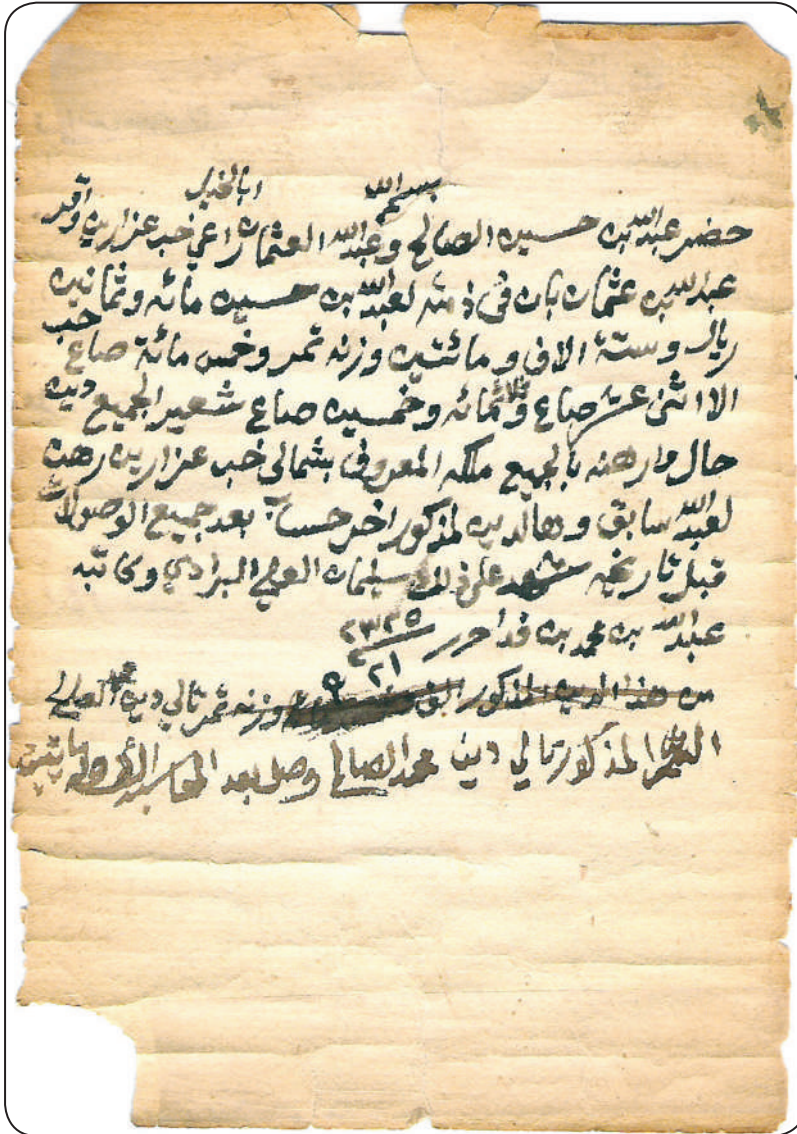 بسم الله
ابالخيل
حضر عبدالله بن حسين الصالح وعبدالله العثمان راعي خب عنزارين واقر
عبدالله بن عثمان بان في ذمته لعبدالله بن حسين مائه وثمانين
ريال وستة الاف ومائتين وزنه تمر وخمس مائة صاع حب
الا اثنى عشر صاع وثلاثمائه وخمسين صاع شعير الجميع دين
حال وارهنه بالجميع ملكه المعروف بشمالي خب عنزارين رهن
لعبدالله سابق وهالدين المذكور اخر حساب بعد جميع الوصولات
قبل تاريخه شهد على ذلك سليمان العلي البرادي وكاتبه
عبدالله بن محمد بن فدا حرر
٢١
من هذا الدين المذكور الف وزنة تمر تالي دين محمد الصالح
المذكور تالي دين محمد الصالح وصل بعد المحاسبه